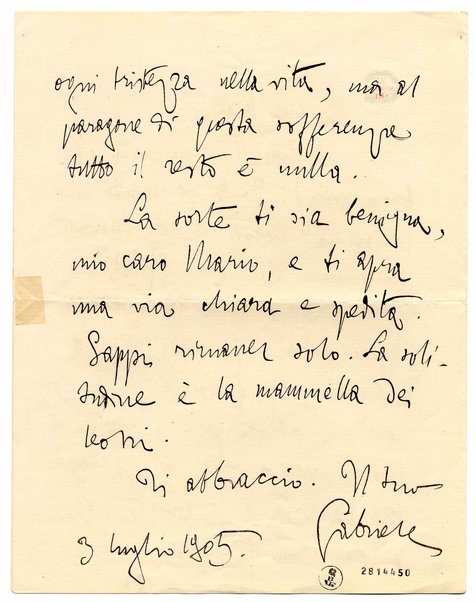 ogni tristezza nella vita, ma al
paragone di questa sofferenza
tutto il resto è nulla.
La sorte ti sia benigna,
mio caro Mario, e ti apra
una via chiara e spedita.
Sappi rimaner solo. La soli-
tudine è la mammella dei
leoni.
Ti abbraccio. Il tuo
Gabriele
3 luglio 1905.
2814450